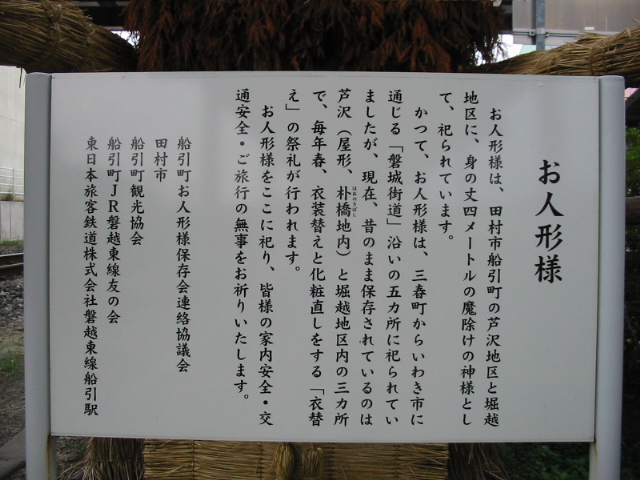 お人形様
お人形様は、田村市船引町の芦沢地区と堀越
地区に、身の丈四メートルの魔除けの神様とし
て、祀られています。
かつて、お人形様は、三春町からいわき市に
通じる「磐城街道」沿いの五カ所に祀られてい
ましたが、現在、昔のまま保存されているのは
芦沢（屋形、朴橋地内）と堀越地区内の三カ所
で、毎年春、衣装替えと化粧直しをする「衣替
え」の祭礼が行われます。
お人形様をここに祀り、皆様の家内安全・交
通安全・ご旅行の無事をお祈りいたします。
船引町お人形様保存会連絡協議会
田村市
船引町観光協会
船引町ＪＲ磐越東線友の会
東日本旅客鉄道株式会社磐越東線船引駅